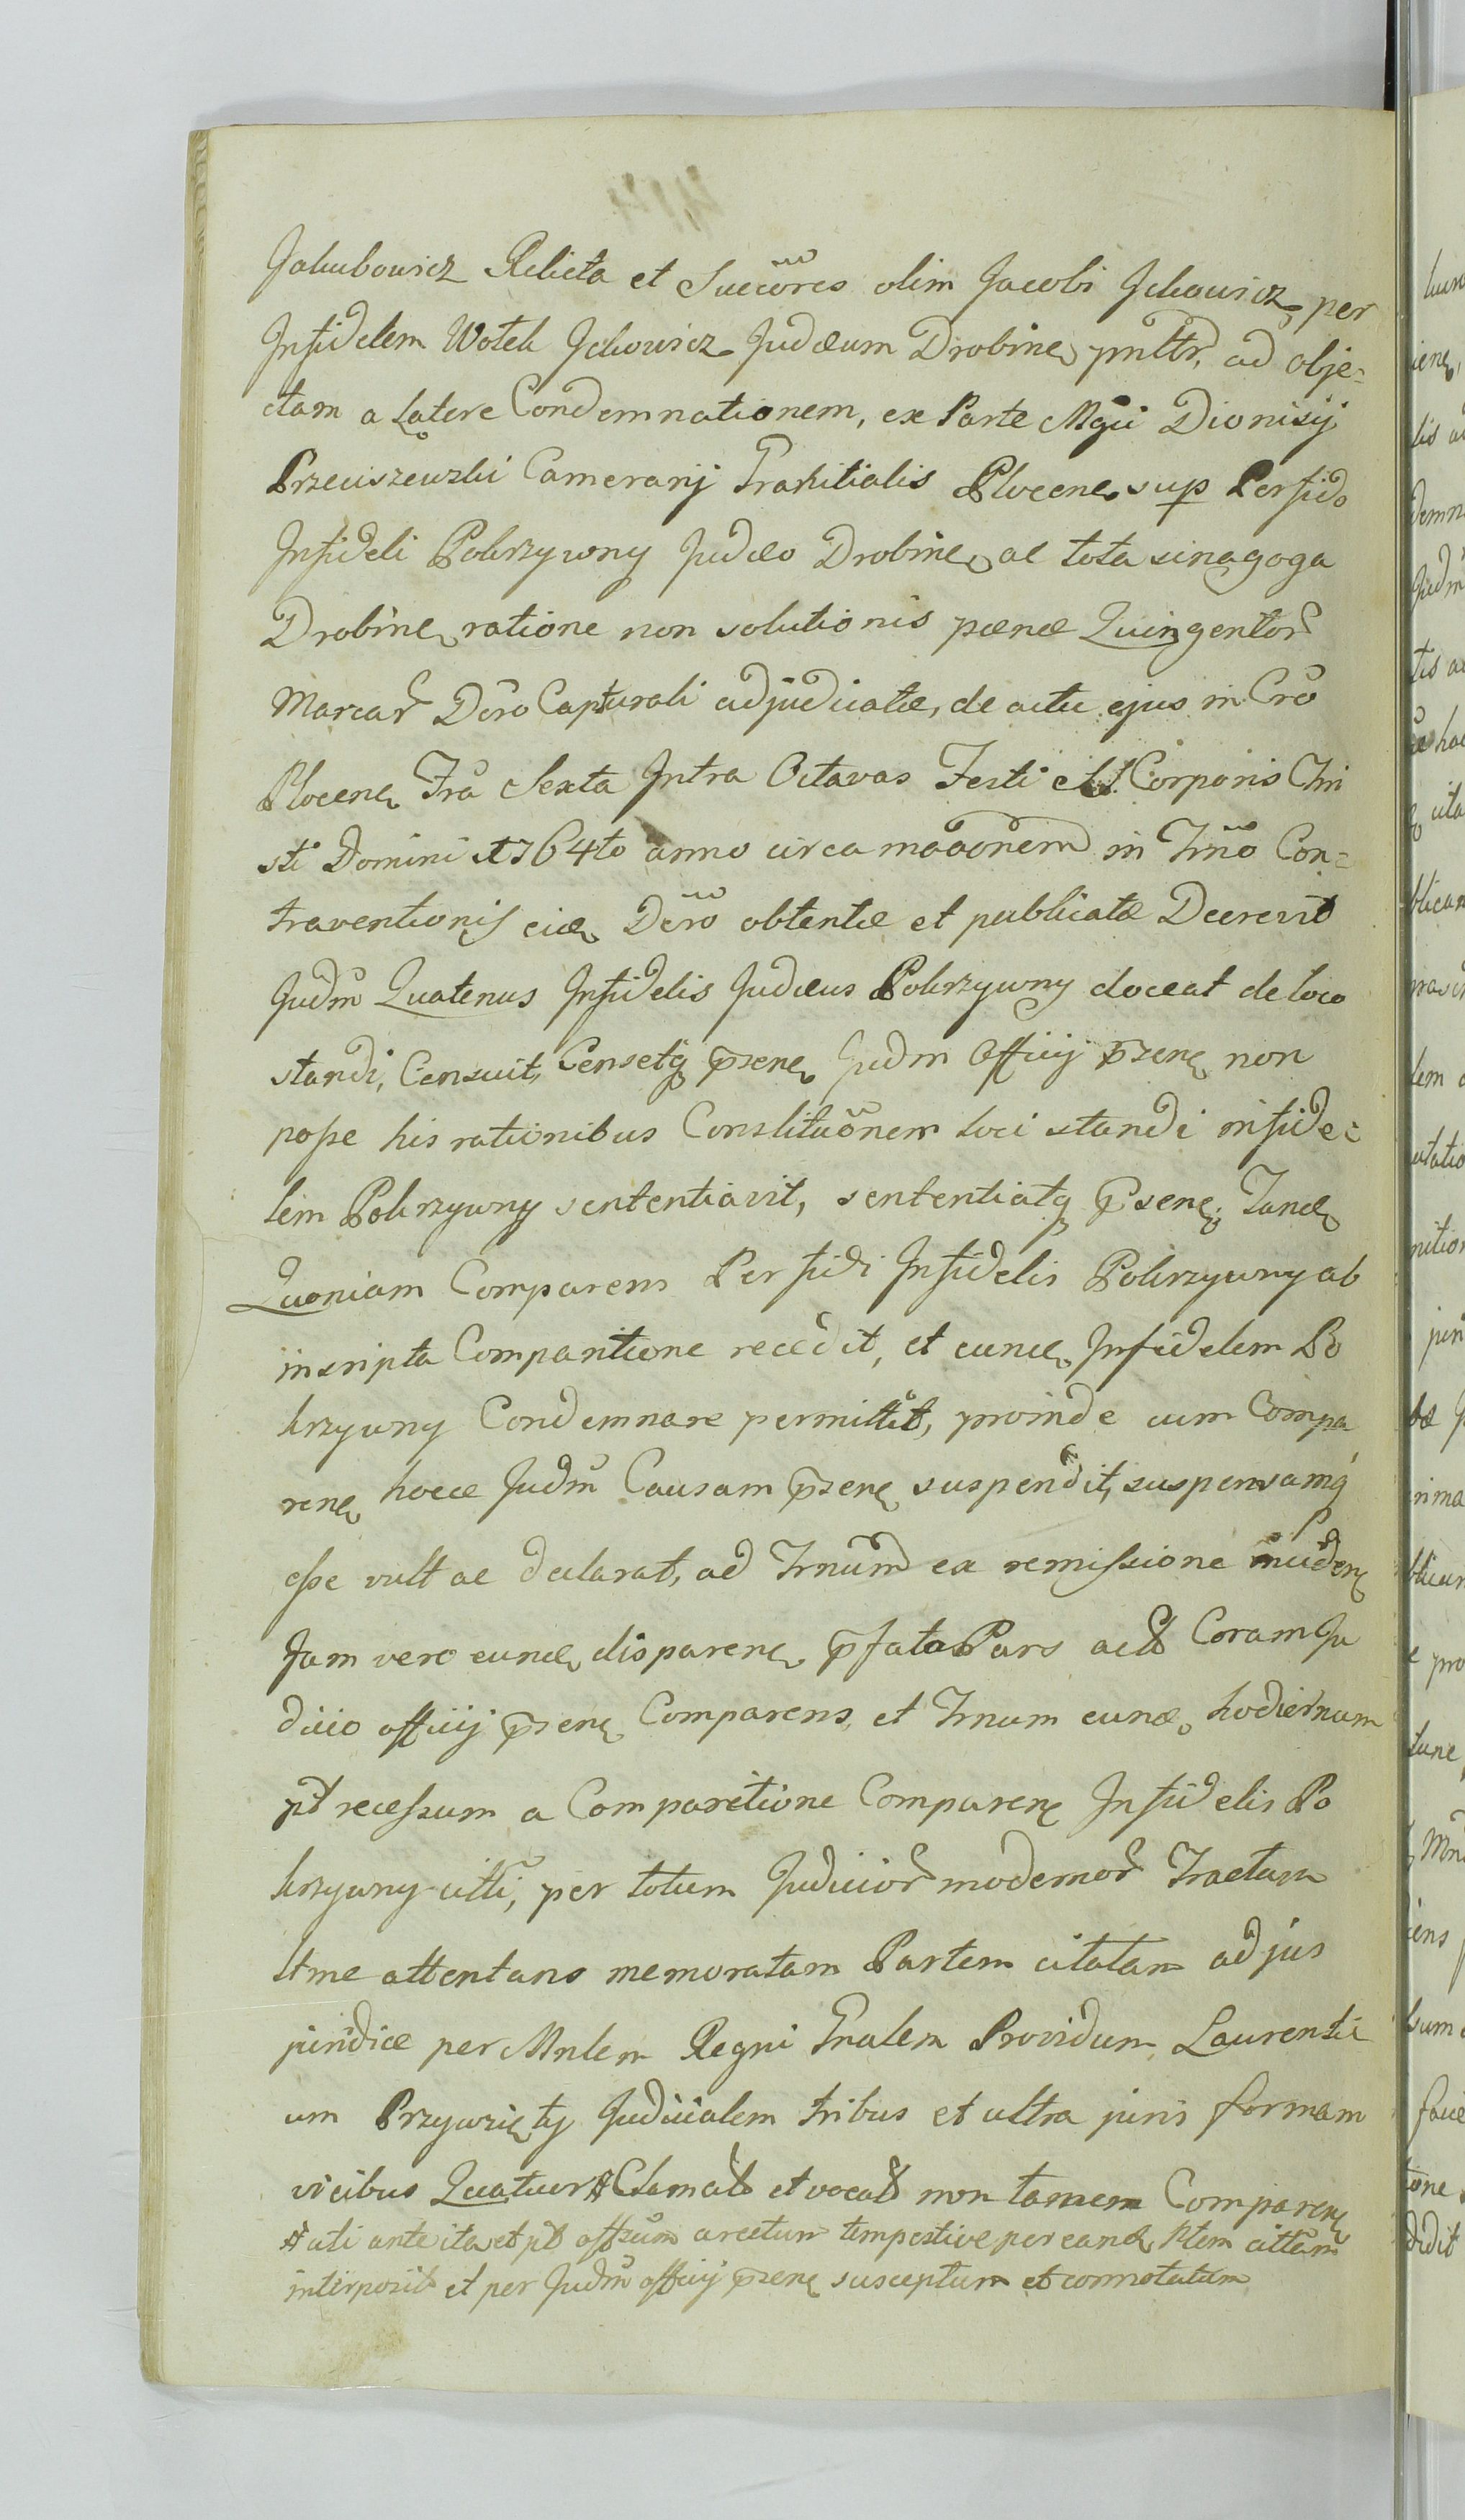 Jakubowicz Relicta et Succöres olim Jacobi Jckowicz per
Infidelem Wolek Jckowicz Judæum Drobinen pnltr, ad obje-
ctam a Latere Condemnationem, ex Parte Mgci Dionisij
Przeciszewski Camerarij Plocen sup Perfido
Infideli Pokrzywny Judæo Drobinen ac tota sinagoga
Drobinen ratione non solutionis pænæ Quingentor
Marcar Dcro Capturali adjudicatæ, de actu ejus in Cro
Plocen Fra Sexta Intra Octavas Festi SS. Corporis Chri
sti Domini 1764to anno circa in Trno Con-
traventionis Dcro obtentæ et publicatæ Decrevit
Judm Quatenus Infidelis Judæus Pokrzywny doceat de loco
standi, Censuit, Censetq prsens Judm Officij prsens non
posse his rationibus Constituonem loci standi infide-
lem Pokrzywny sententiavit, sententiatq prsens, Tandem
Quoniam Comparens Perfidi Infidelis Pokrzywny ab
inscripta Comparitione recedit, et eund Infidelem Po
krzywny Condemnare permittit, proinde cum Compa
ren hocce Judm Causam prsens suspendit, suspensamq
esse vult ac declarat, ad Trnum ex remissione inciden
Jam vero eund disparen pfata Pars act Coram Ju
dicio officij prsen Comparens, et Trnum eund hodiernum
pt recessum a Comparitione Comparen Infidelis Po
krzywny citti, per totum Judicior modernor Tractum
ltme attentans memoratam Partem citatam ad jus
juridice per Mnlem Regni Gnalem Providum Laurenti
um Przywzięty Judicialem tribus et ultra juris formam
vicibus Quatuor # Clamat et vocat non tamen Comparen
# uti ante ita et pt affixum arcetum tempestive per eand Ptem cittam
interposit et per Judm officij prsen susceptum et connotatum